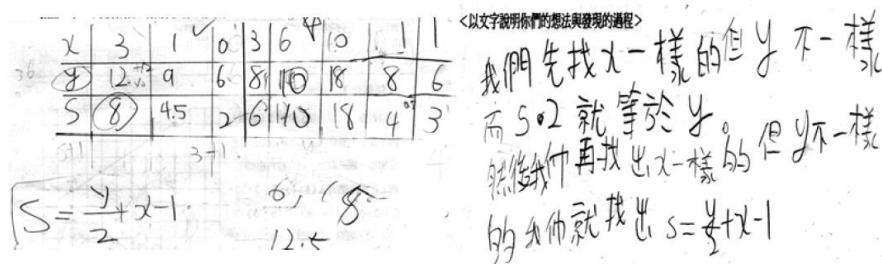 x 3 1 0 3 6 10 1 1
y 12 9 6 8 10 18 8 6
S 8 4.5 2 6 10 18 4 3
3+1
S = y/2 + x - 1
6, 8
12.5
<以文字說明你們的想法與發現的過程>
我們先找x一樣的但y不一樣
而S·2就等於y。
然後我們再找出x一樣的但y不一樣
的我們就找出S=y/2+x-1